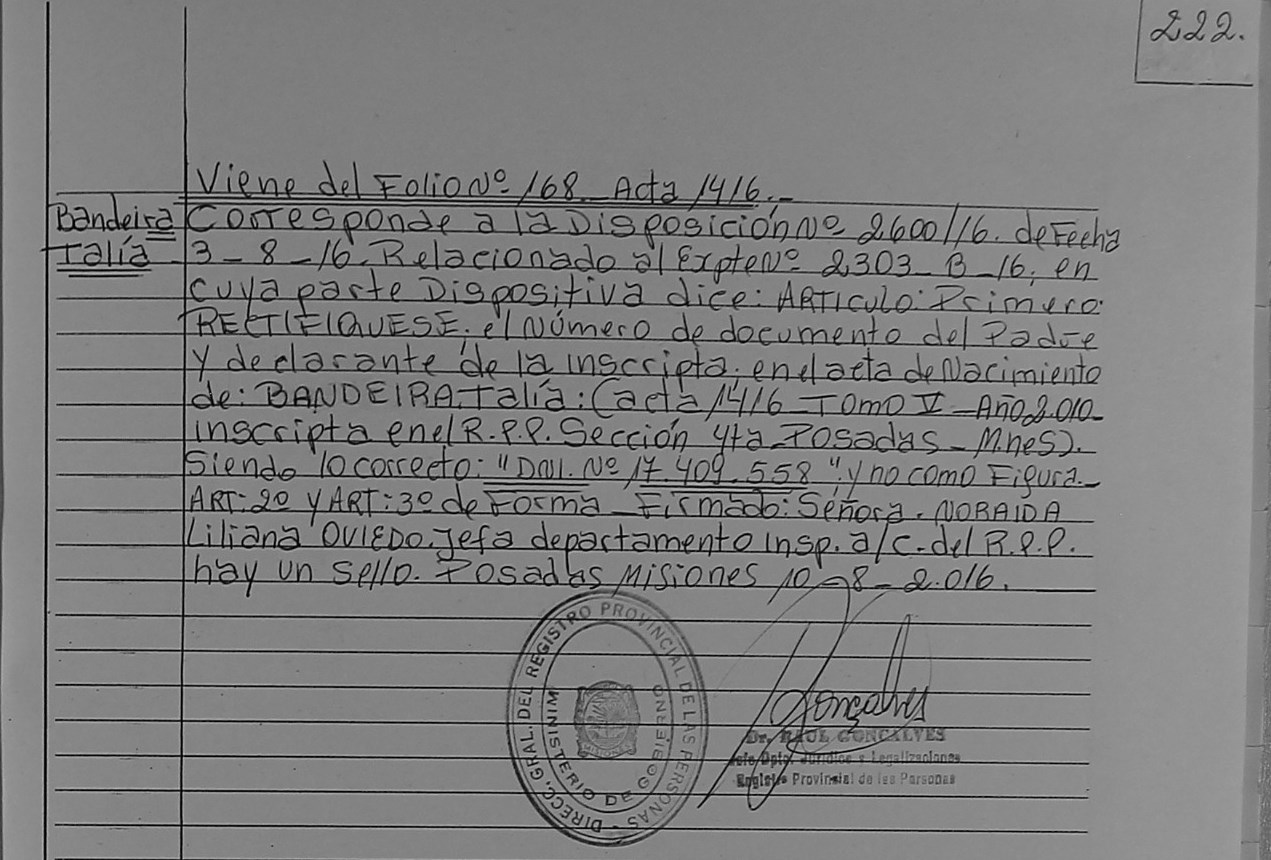 222.
Viene del Folio Nº 168 - Acta 1416.-
Bandeira
Talía
Corresponde a la Disposición Nº 2600/16. de Fecha
3-8-16. Relacionado al Expte Nº 2303-B-16, en
cuya parte Dispositiva dice: ARTICULO: Primero:
RECTIFIQUESE. el Número de documento del Padre
y declarante de la inscripta, en el acta de Nacimiento
de: BANDEIRA, Talía: (acta 1416 - Tomo V - Año 2.010-
inscripta en el R.P.P. Sección 4ta Posadas - M.nes).
Siendo lo correcto: "DNI. Nº 17.409.558" y no como Figura.-
ART: 2º y ART: 3º de Forma - Firmado: Señora. NORAIDA
Liliana OVIEDO. Jefa departamento Insp. a/c. del R.P.P.
hay un sello. Posadas Misiones 10-8-2.016.
DIRECC. GRAL. DEL REGISTRO PROVINCIAL DE LAS PERSONAS -
MINISTERIO DE GOBIERNO
Gonçalves
Dr. RAUL GONCALVES
Jefe Dpto. Jurídico y Legalizaciones
Registro Provincial de las Personas